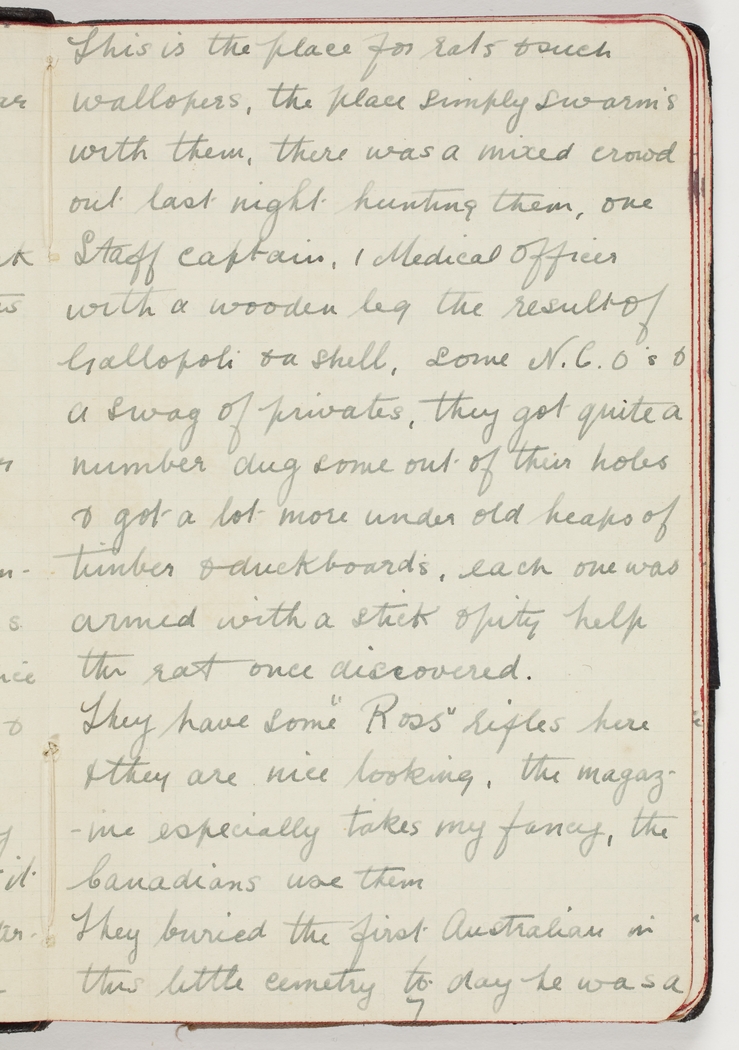 This is the place for rats & such
wallopers, the place simply swarms
with them, there was a mixed crowd
out last night hunting them, one
Staff captain, 1 Medical Officer
with a wooden leg the result of
Gallopoli & a shell, some N.C.O's &
a swag of privates, they got quite a
number dug some out of their holes
& got a lot more under old heaps of
timber & duckboards, each one was
armed with a stick & pity help
the rat once discovered.
They have some "Ross" rifles here
& they are nice looking, the magaz-
-ine especially takes my fancy, the
Canadians use them
They buried the first Australian in
this little cemetry to day he was a
7